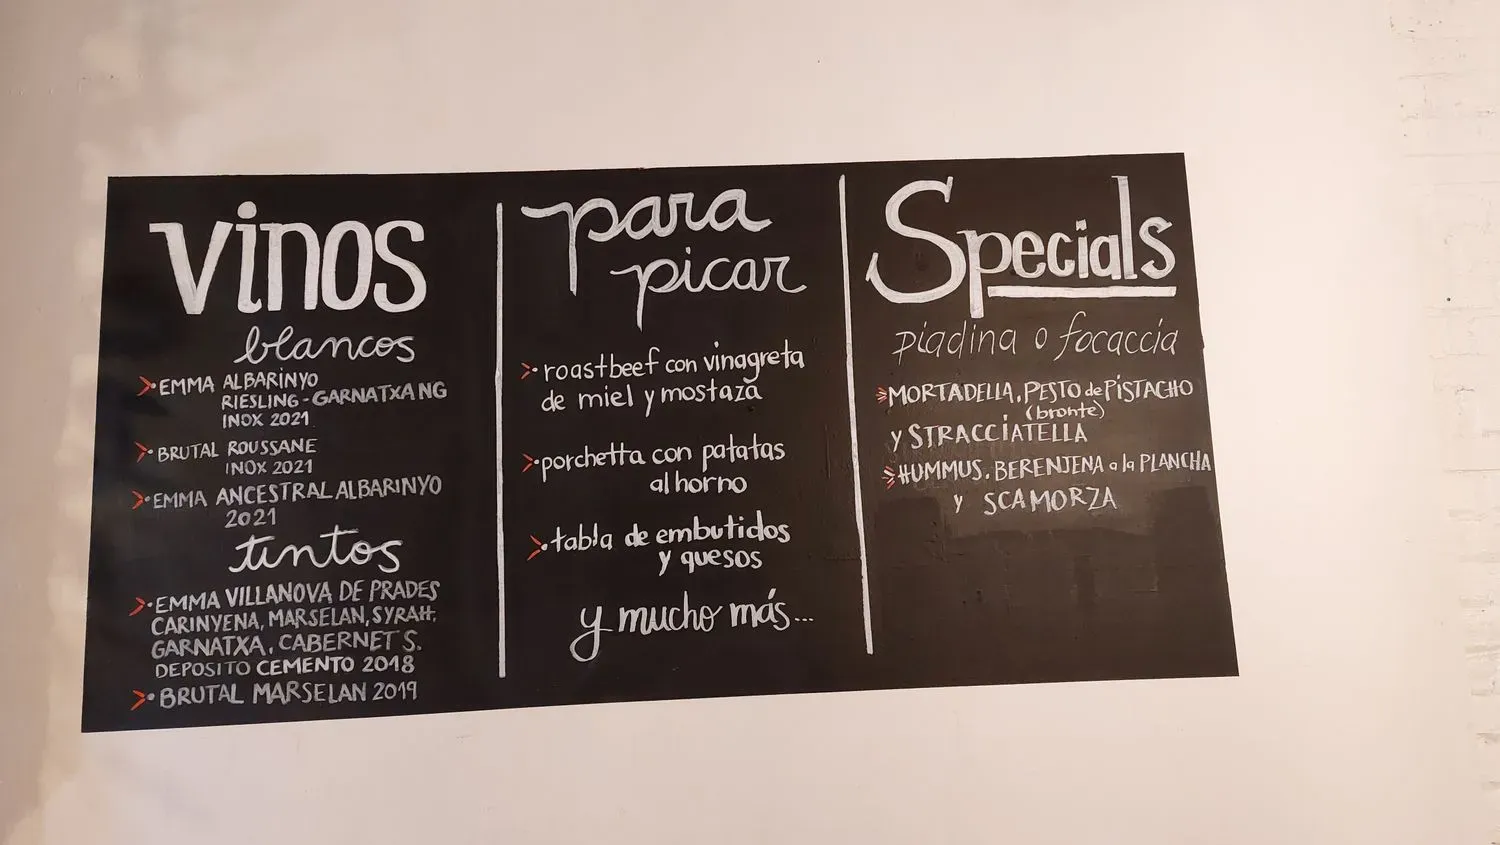 vinos
blancos
EMMA ALBARINYO
RIESLING-GARNATXA NG
INOX 2021
BRUTAL ROUSSANE
INOX 2021
EMMA ANCESTRAL ALBARINYO
2021
tintos
EMMA VILLANOVA DE PRADES
CARINYENA, MARSELAN, SYRAH,
GARNATXA, CABERNET S.
DEPOSITO CEMENTO 2018
BRUTAL MARSELAN 2019
para
picar
roastbeef con vinagreta
de miel y mostaza
porchetta con patatas
al horno
tabla de embutidos
y quesos
y mucho más...
Specials
piadina o focaccia
MORTADELLA, PESTO de PISTACHO
(bronte)
y STRACCIATELLA
HUMMUS, BERENJENA a la PLANCHA
y SCAMORZA